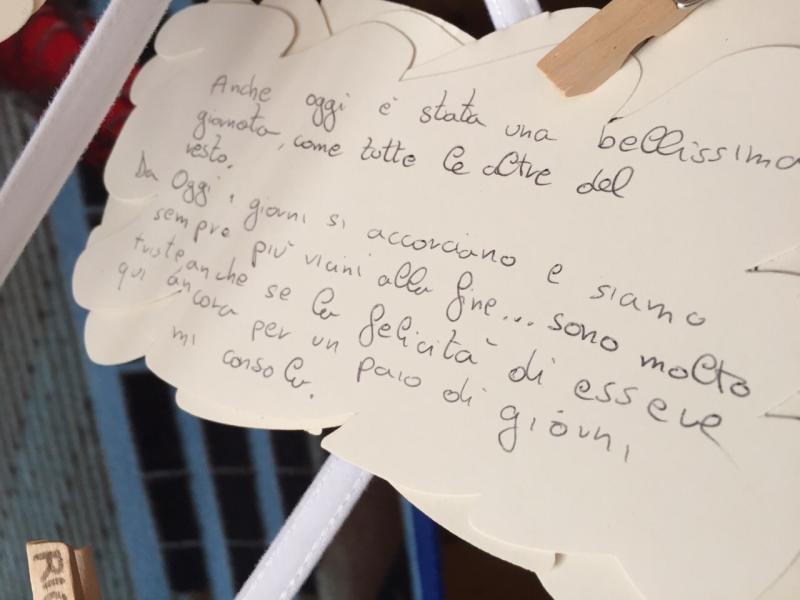 Anche oggi è stata una bellissima
giornata, come tutte le altre del
resto.
Da Oggi i giorni si accorciano e siamo
sempre più vicini alla fine... sono molto
triste anche se la felicità di essere
qui ancora per un paio di giorni
mi consola.
RIC